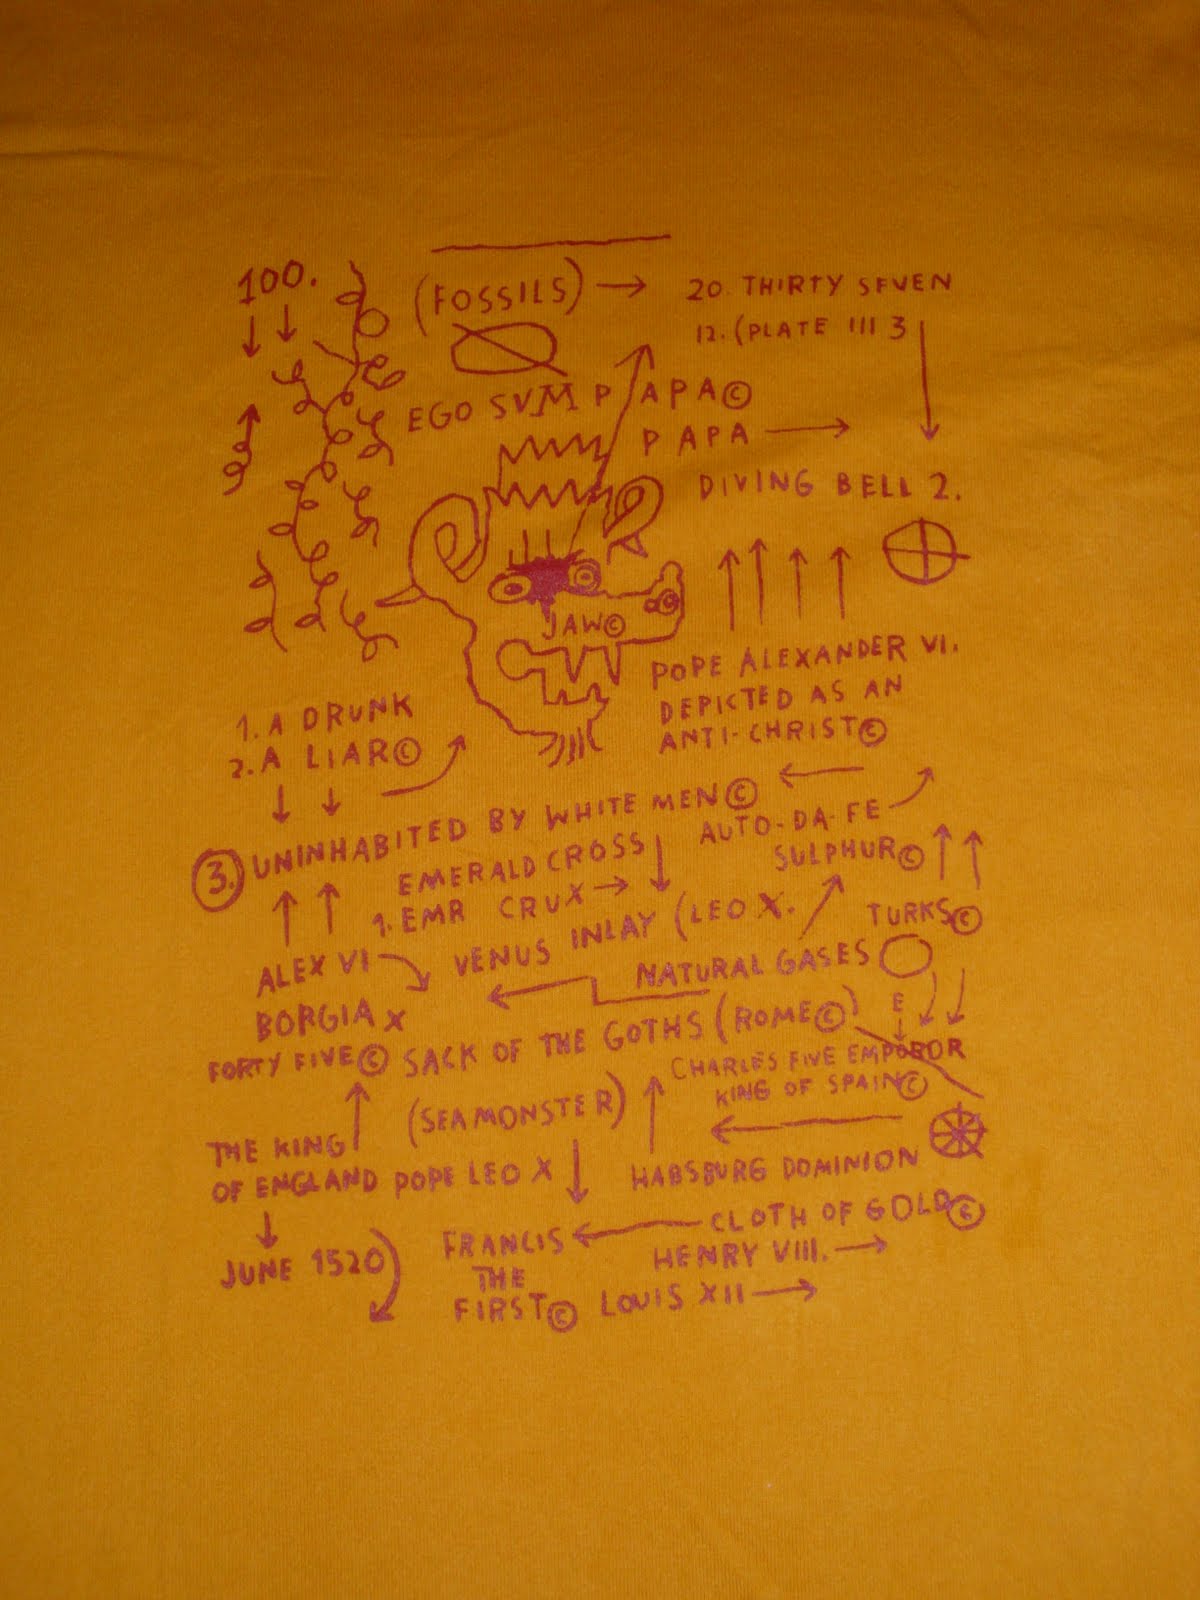 100.
(FOSSILS) → 20. THIRTY SEVEN
12. (PLATE III 3
EGO SVM PAPA©
PAPA →
DIVING BELL 2.
JAW©
POPE ALEXANDER VI.
DEPICTED AS AN
ANTI-CHRIST©
1. A DRUNK
2. A LIAR©
3. UNINHABITED BY WHITE MEN©
AUTO-DA-FE
SULPHUR©
EMERALD CROSS
1. EMR CRUX →
VENUS INLAY (LEO X.
TURKS©
ALEX VI
BORGIA X
NATURAL GASES
FORTY FIVE© SACK OF THE GOTHS (ROME©)
E
CHARLES FIVE EMPOROR
KING OF SPAIN©
(SEA MONSTER)
THE KING
OF ENGLAND POPE LEO X
HABSBURG DOMINION
CLOTH OF GOLD©
JUNE 1520
FRANCIS
THE
FIRST©
HENRY VIII. →
LOUIS XII →